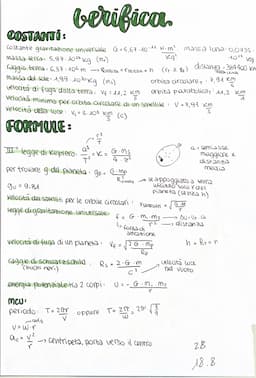 verifica
COSTANTI:
costante gravitazione universale G = 6,67·10⁻¹¹ N·m²/kg² massa luna: 0,0735·10²⁴ kg
massa terra: 5,97·10²⁴ kg (m₁)
raggio terra: 6,37·10⁶ m
massa del sole: 1,99·10³⁰ kg (m₂) orbita circolare: 7,91 km/s
velocità di fuga dalla terra: V_f = 11,2 km/s orbita parabolica: 11,2 km/s
velocità minima per orbita circolare di un satellite: V = 7,91 km/s
velocità della luce: (c)
FORMULE:
III legge di Keplero: a³/T² = K = G·m₁/4π² a = semiasse maggiore e distanza media
per trovare g del pianeta: g₀ =
g₀ = 9.81
velocità dei satelliti per le orbite circolari:
legge di gravitazione universale: F = G·m₁·m₂/r² → distanza
forza di attrazione
velocità di fuga di un pianeta: V_F = √2·G·m_p/R_p h = R₁ + h
raggio di Schwarzschild (buchi neri) R_s = 2·G·m/c² velocità luce nel vuoto
energia potenziale tra 2 corpi: U = -G·m₁·m₂/r
MCU:
periodo: T = 2πr/V oppure T = 2π/W
V = W·r
a_c = V²/r → centripeta, porta verso il centro
2B
18.8